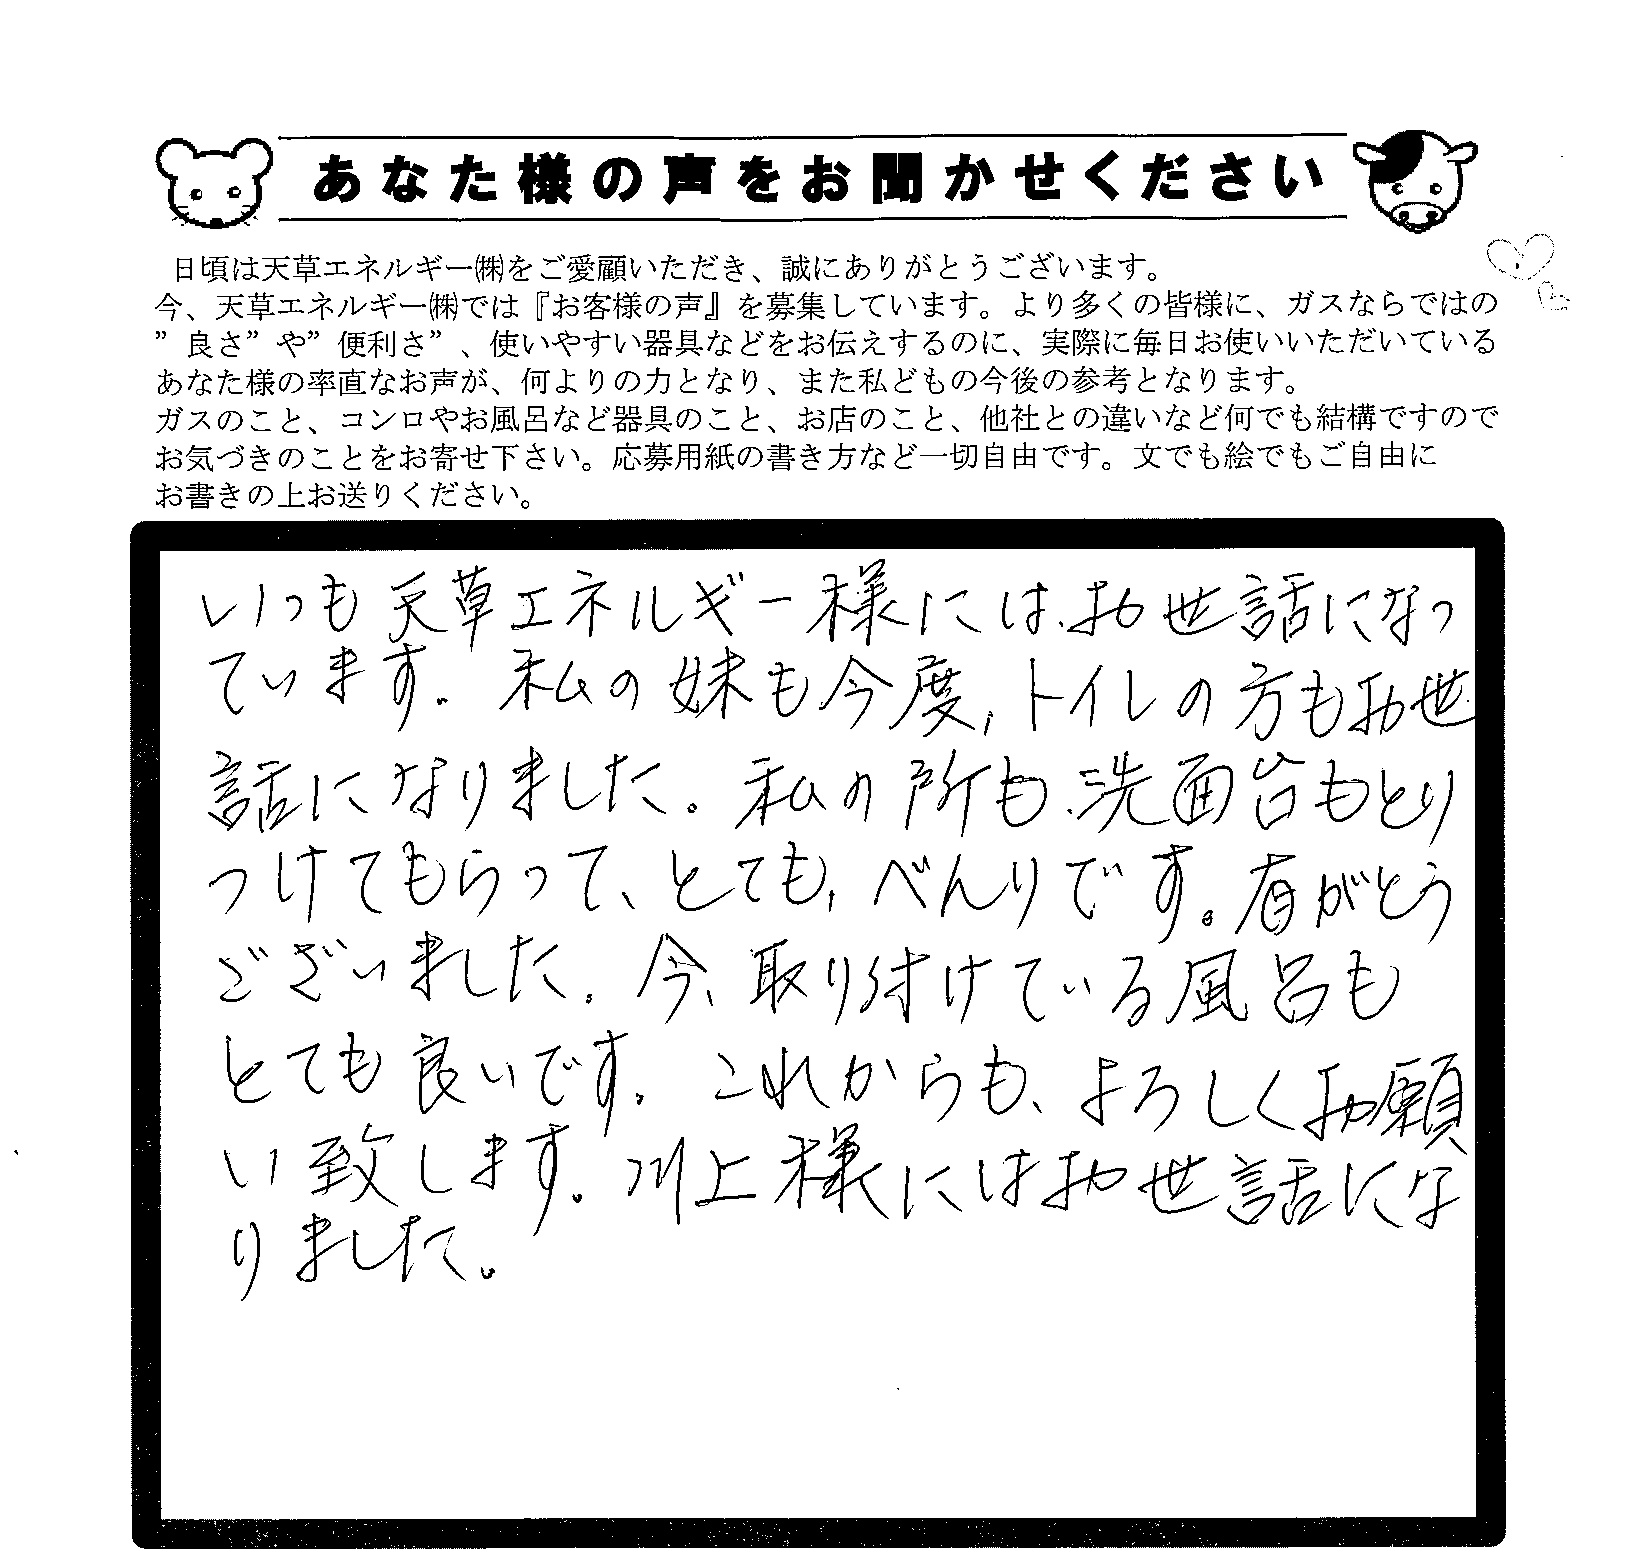 あなた様の声をお聞かせください
日頃は天草エネルギー㈱をご愛顧いただき、誠にありがとうございます。
今、天草エネルギー㈱では『お客様の声』を募集しています。より多くの皆様に、ガスならではの
”良さ”や”便利さ”、使いやすい器具などをお伝えするのに、実際に毎日お使いいただいている
あなた様の率直なお声が、何よりの力となり、また私どもの今後の参考となります。
ガスのこと、コンロやお風呂など器具のこと、お店のこと、他社との違いなど何でも結構ですので
お気づきのことをお寄せ下さい。応募用紙の書き方など一切自由です。文でも絵でもご自由に
お書きの上お送りください。
いつも天草エネルギー様には、お世話になっ
ています。私の妹も今度、トイレの方もお世
話になりました。私の所も、洗面台もとり
つけてもらって、とても、べんりです。有がとう
ございました。今、取り付けている風呂も
とても良いです。これからも、よろしくお願
い致します。川上様にはお世話にな
りました。